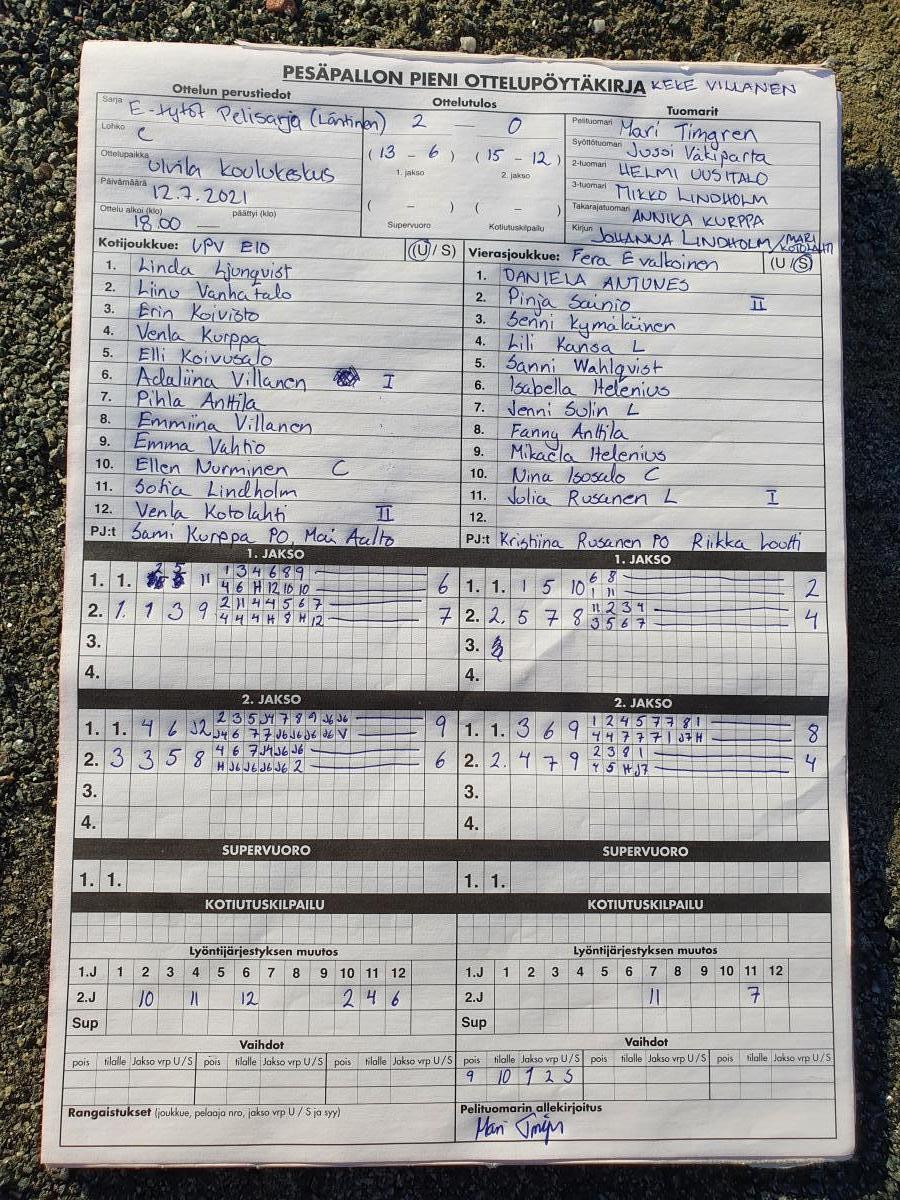 PESÄPALLON PIENI OTTELUPÖYTÄKIRJA KEKE VILLANEN
Ottelun perustiedot
Sarja E-tytöt Pelisarja (Läntinen)
Lohko C
Ottelupaikka Ulvila koulukeskus
Päivämäärä 12.7.2021
Ottelu alkoi (klo) 18.00 päättyi (klo) —
Ottelutulos
2 — 0
(13 - 6) (15 - 12)
1. jakso 2. jakso
( - ) ( - )
Supervuoro Kotiutuskilpailu
Tuomarit
Pelituomari Mari Timgren
Syöttötuomari Jussi Väkiparta
2-tuomari HELMI UUSITALO
3-tuomari MIKKO LINDHOLM
Takarajatuomari ANNIKA KURPPA
Kirjuri JOHANNA LINDHOLM / MARI KOTOLAHTI
Kotijoukkue: UPV E10 (U / S)
1. Linda Ljunqvist
2. Liinu Vanhatalo
3. Erin Koivisto
4. Venla Kurppa
5. Elli Koivusalo
6. Adaliina Villanen I
7. Pihla Anttila
8. Emmiina Villanen
9. Emma Vahtio
10. Ellen Nurminen C
11. Sofia Lindholm
12. Venla Kotolahti II
PJ:t Sami Kurppa PO, Mai Aalto
Vierasjoukkue: Fera E valkoinen (U / S)
1. DANIELA ANTUNES
2. Pinja Sainio II
3. Senni Kymäläinen
4. Lili Kansa L
5. Sanni Wahlqvist
6. Isabella Helenius
7. Jenni Sulin L
8. Fanny Anttila
9. Mikaela Helenius
10. Nina Isosalo C
11. Julia Rusanen L I
12.
PJ:t Kristiina Rusanen PO Riikka Loutti
1. JAKSO
1. 1. 2 5 11 1 3 4 6 8 9 6
4 6 H 12 10 10
2. 1. 1 3 9 2 11 4 4 5 6 7 7
4 4 4 H 8 H 12
3.
4.
1. JAKSO
1. 1. 1 5 10 6 8 2
1 11
2. 2. 5 7 8 11 2 3 4 4
3 5 6 7
3.
4.
2. JAKSO
1. 1. 4 6 J2 2 3 5 J4 7 8 9 J6 J6 9
J4 6 7 7 J6 J6 J6 J6 V
2. 3 3 5 8 4 6 7 J4 J6 J6 6
H J6 J6 J6 J6 2
3.
4.
2. JAKSO
1. 1. 3 6 9 1 2 4 5 7 7 8 1 8
4 4 7 7 7 1 J7 H
2. 2. 4 7 9 2 3 8 1 4
4 5 H J7
3.
4.
SUPERVUORO
1. 1.
SUPERVUORO
1. 1.
KOTIUTUSKILPAILU
KOTIUTUSKILPAILU
Lyöntijärjestyksen muutos
1.J 1 2 3 4 5 6 7 8 9 10 11 12
2.J 10 11 12 2 4 6
Sup
Lyöntijärjestyksen muutos
1.J 1 2 3 4 5 6 7 8 9 10 11 12
2.J 11 7
Sup
Vaihdot
pois tilalle Jakso vrp U / S pois tilalle Jakso vrp U / S pois tilalle Jakso vrp U / S
Vaihdot
pois tilalle Jakso vrp U / S pois tilalle Jakso vrp U / S pois tilalle Jakso vrp U / S
9 10 1 2 S
Rangaistukset (joukkue, pelaaja nro, jakso vrp U / S ja syy)
Pelituomarin allekirjoitus